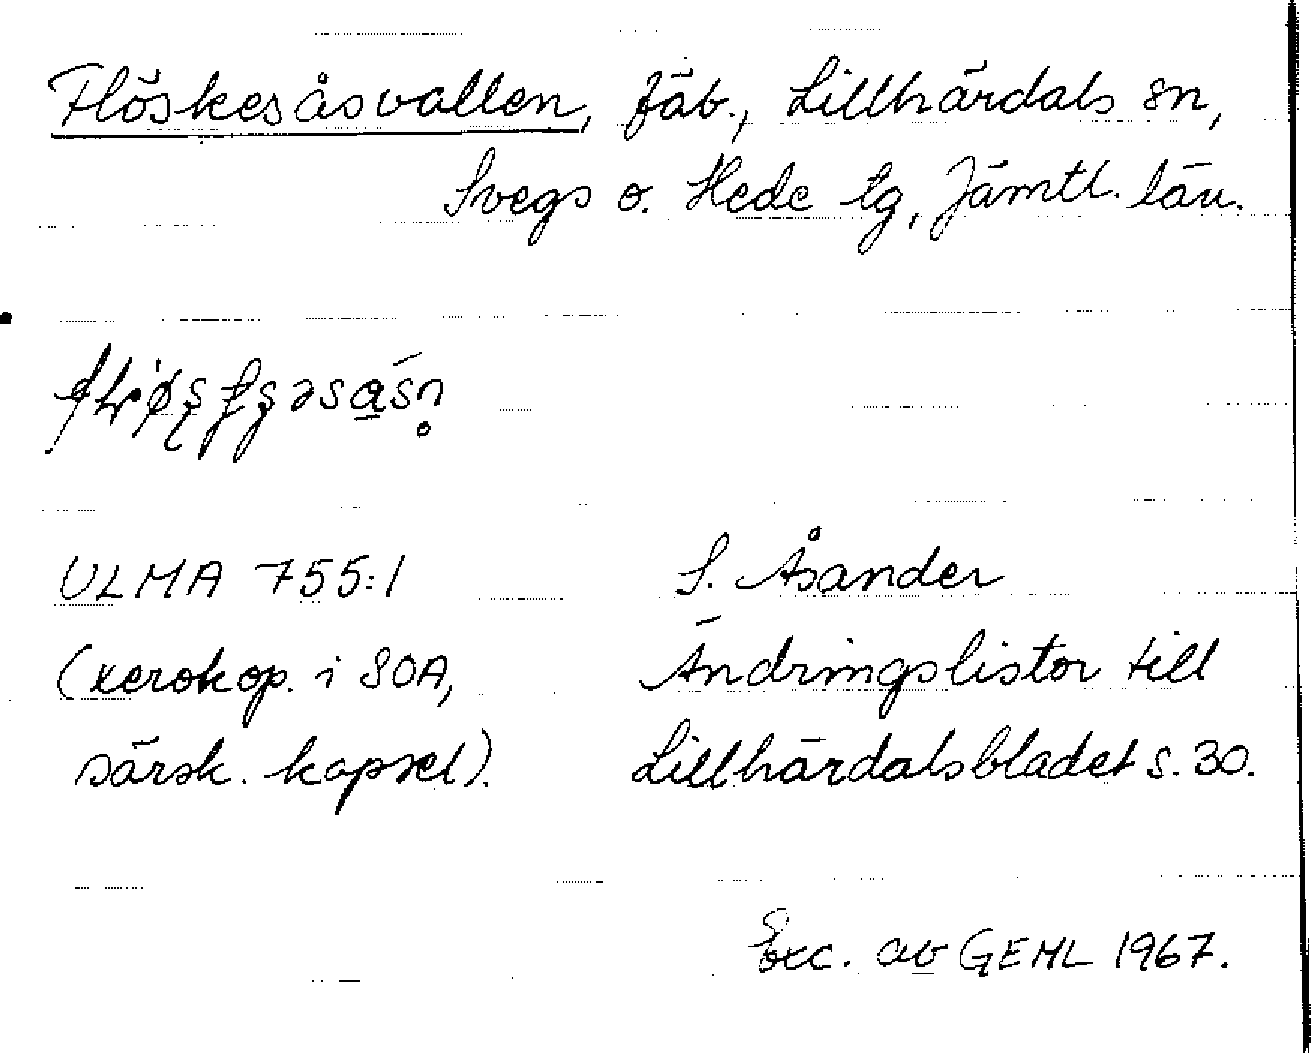 Flöskesåsvallen, fäb., Lillhärdals sn,
Svegs o. Hede tg, Jämtl. län.
ULMA 755:1
(xerokop. i SOA,
särsk. kapsel).
S. Åsander
Ändringslistor till
Lillhärdalsbladet s. 30.
Exc. av GEHL 1967.